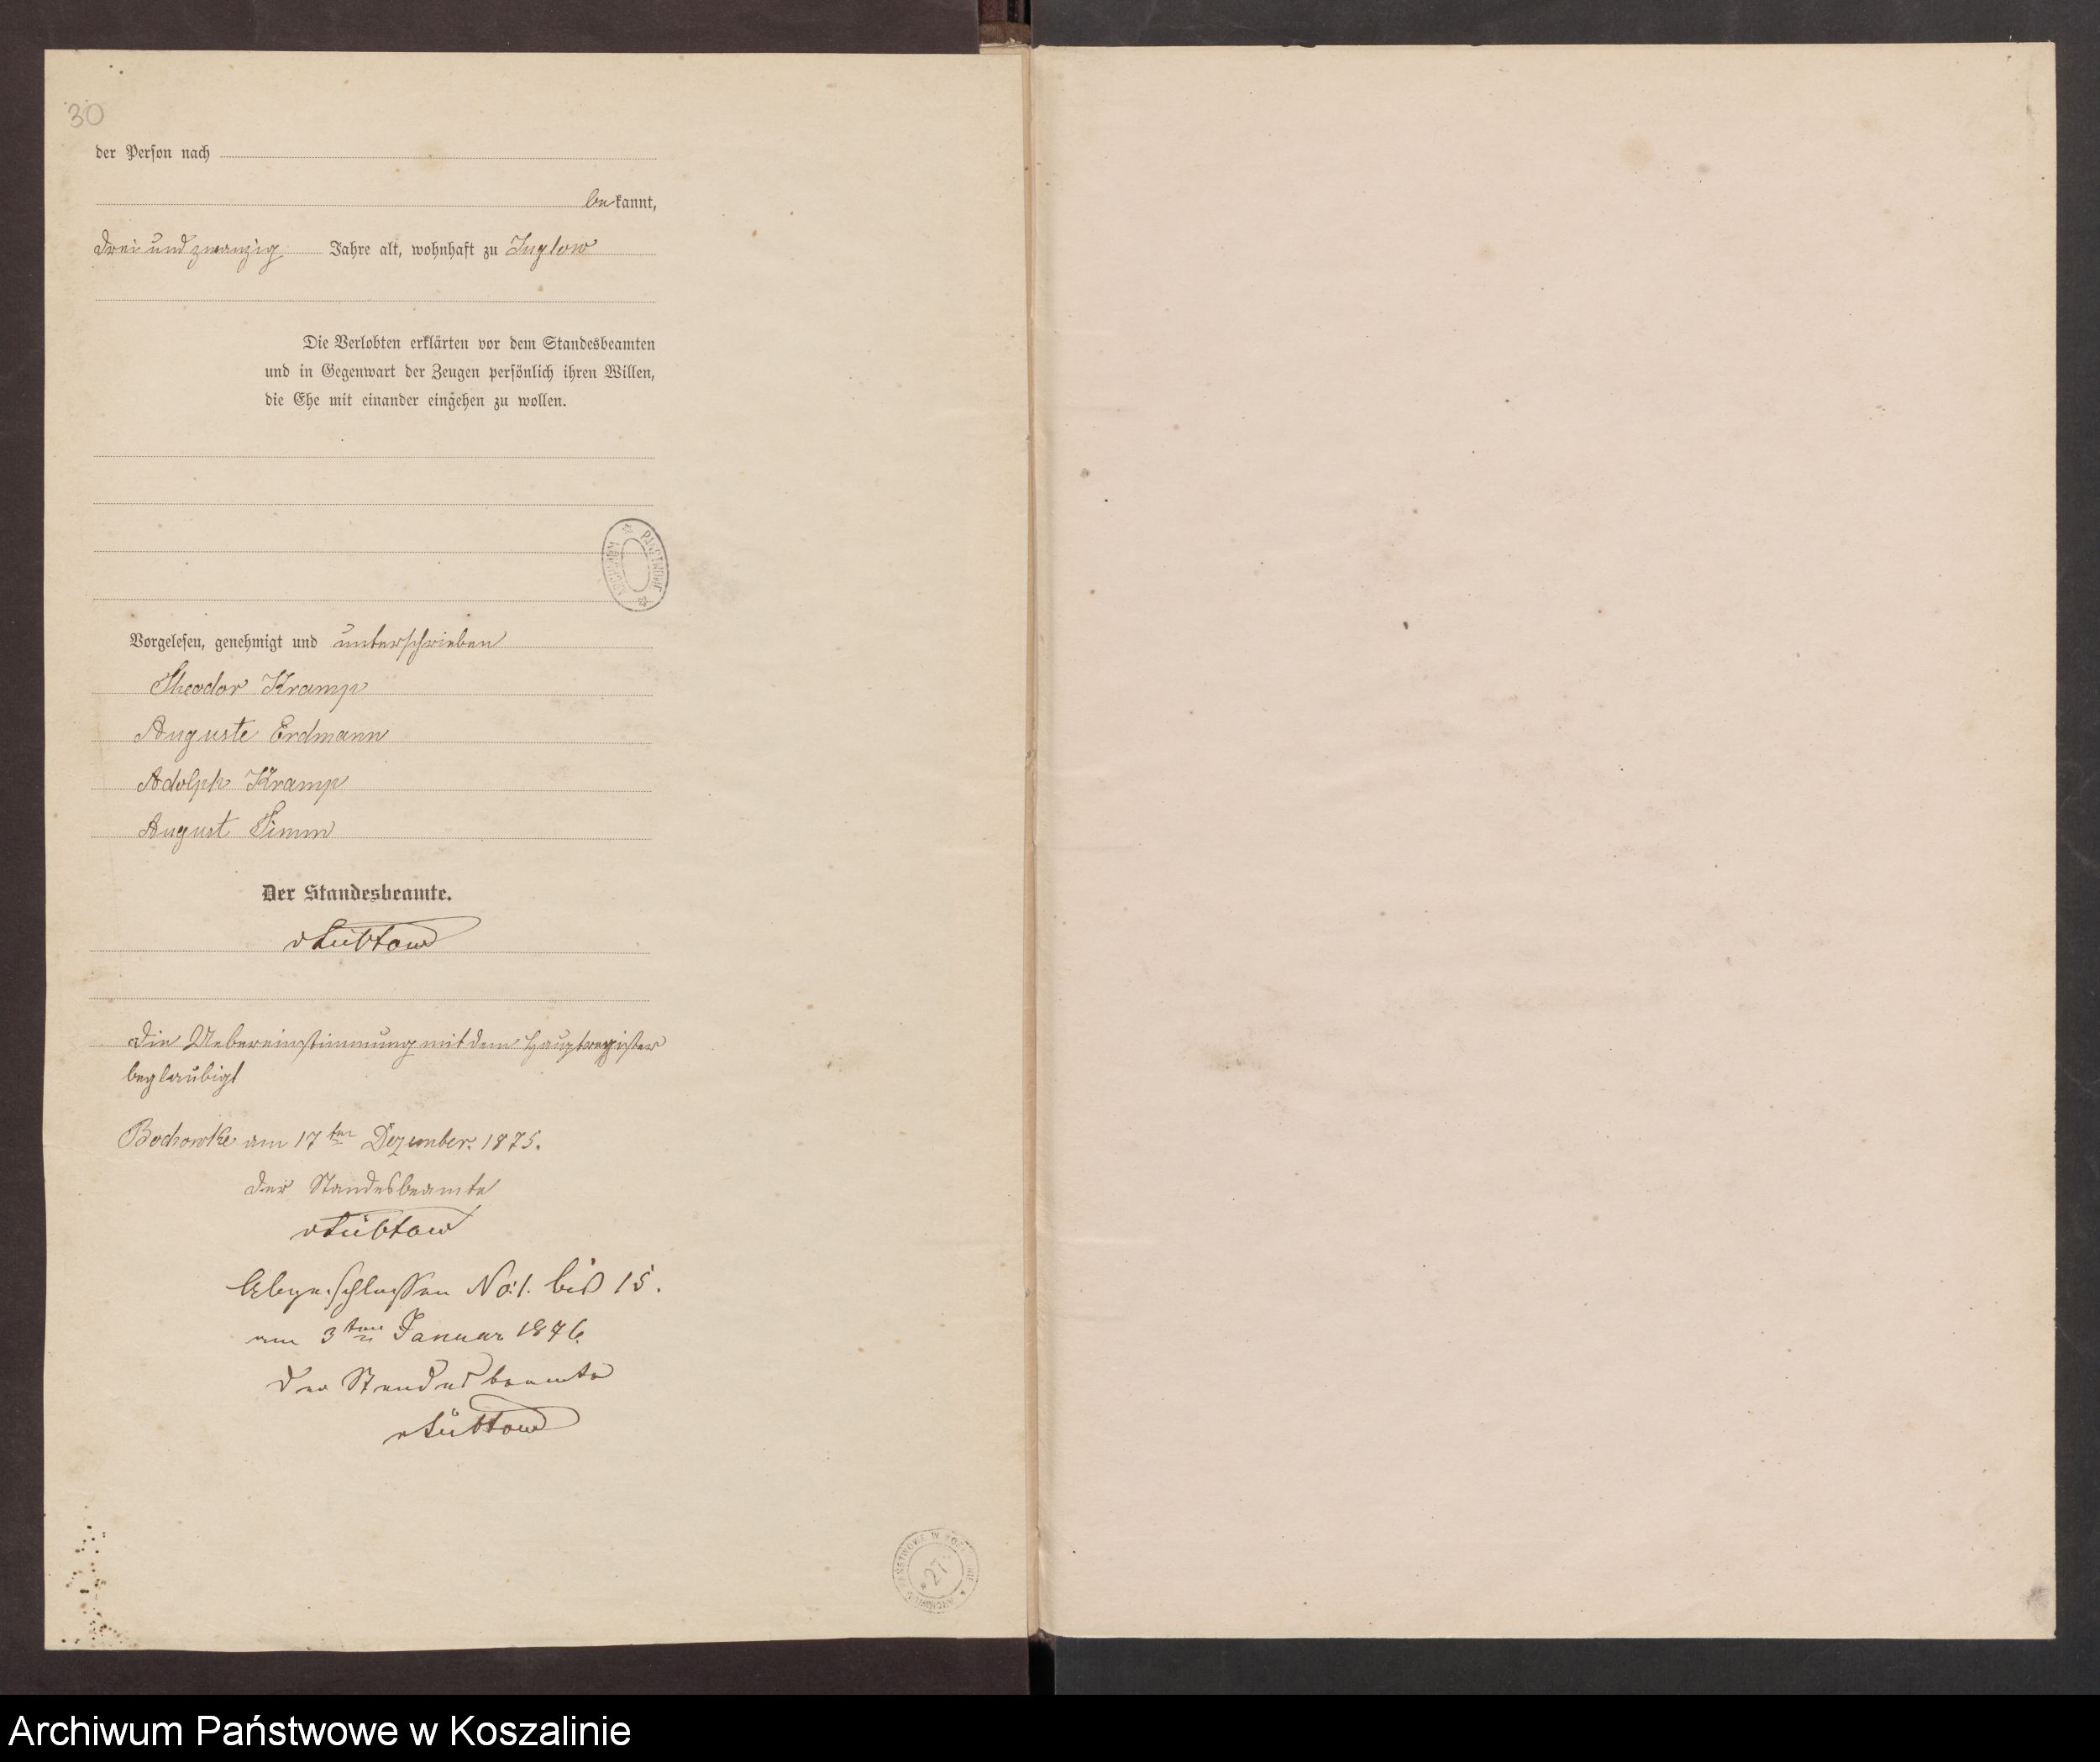 30
der Person nach
bekannt,
drei und zwanzig Jahre alt, wohnhaft zu Juglow
Die Verlobten erklärten vor dem Standesbeamten
und in Gegenwart der Zeugen persönlich ihren Willen,
die Ehe mit einander eingehen zu wollen.
Vorgelesen, genehmigt und unterschrieben
Theodor Kramp
Auguste Erdmann
Adolph Kramp
August Timm
Der Standesbeamte.
v Lübtow
Die Uebereinstimmung mit dem Hauptregister
beglaubigt
Bochowke am 17ten Dezember 1875.
Der Standesbeamte
v Lübtow
Abgeschlossen No: 1. bis 15.
am 3ten Januar 1876.
Der Standesbeamte
v Lübtow
27
Archiwum Państwowe w Koszalinie